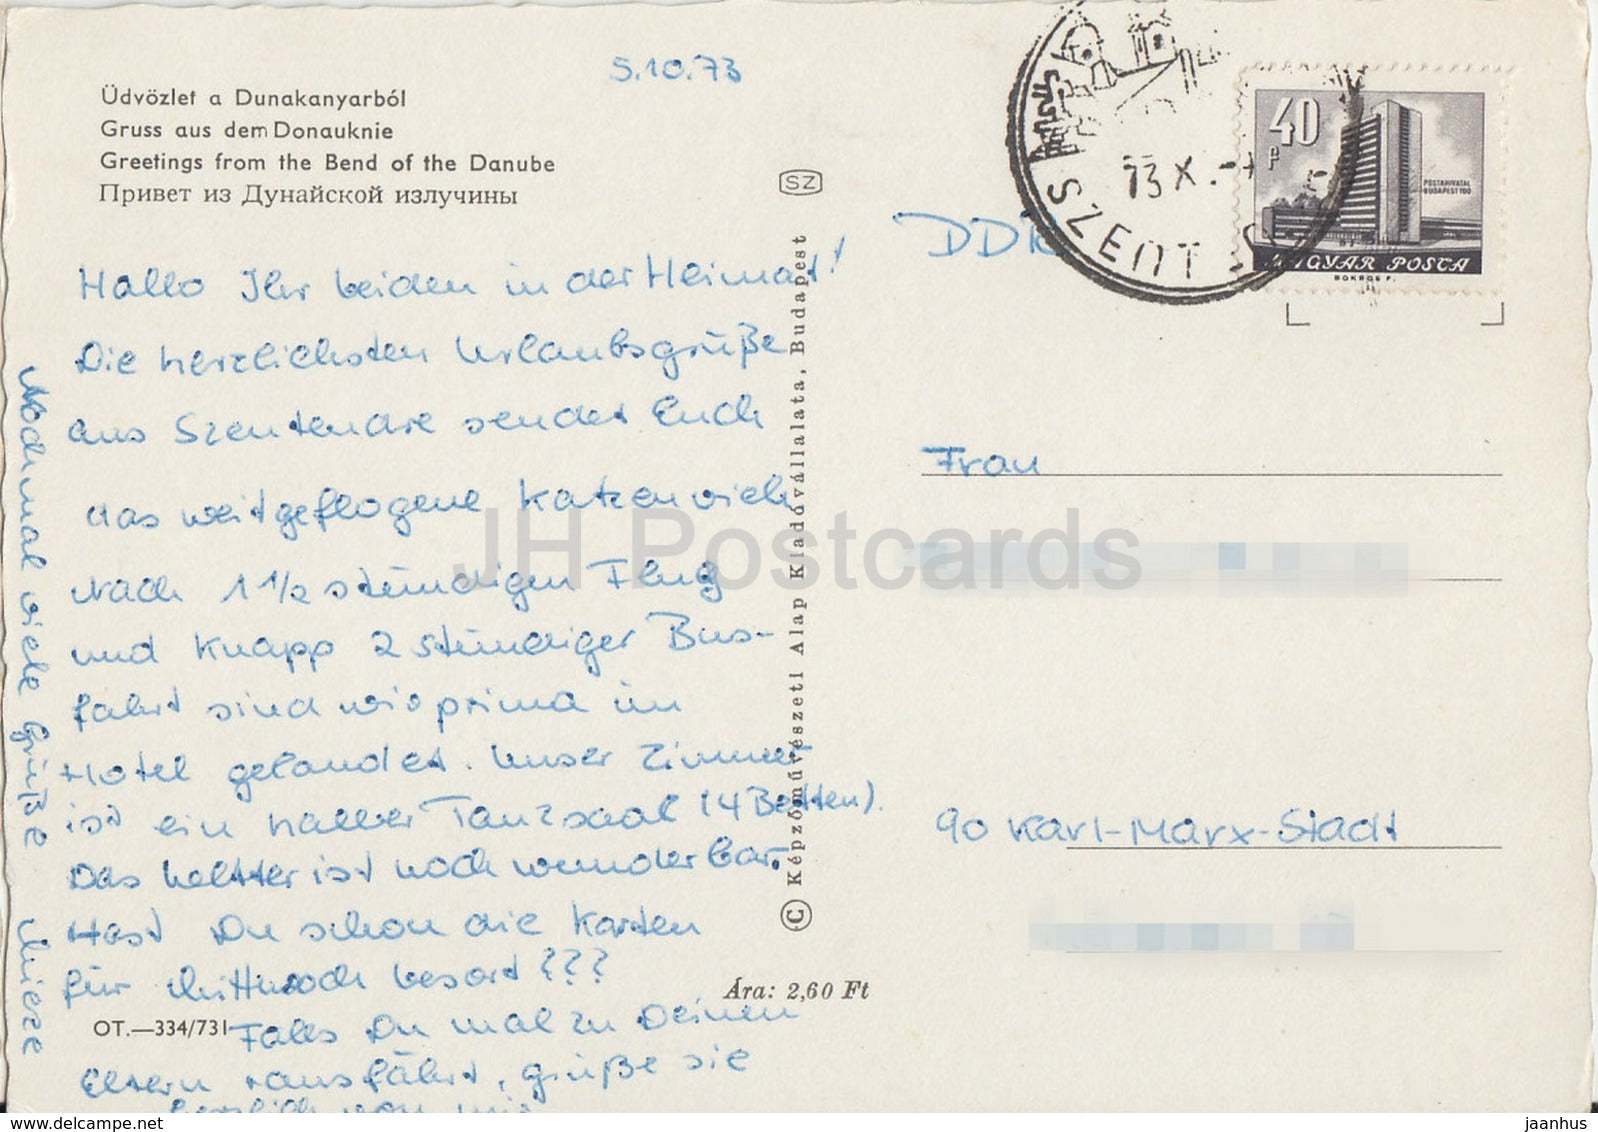 5.10.73
Üdvözlet a Dunakanyarból
Gruss aus dem Donauknie
Greetings from the Bend of the Danube
Привет из Дунайской излучины
Hallo Ihr beiden in der Heimat!
Die herzlichsten Urlaubsgrüße
aus Szentendre sendet Euch
das weitgeflogene Katzenvieh
Nach 1 1/2 stündigen Flug
und knapp 2 stündiger Bus-
fahrt sind wir prima im
Hotel gelandet. Unser Zimmer
ist ein halber Tanzsaal (4 Betten).
Das Wetter ist noch wunderbar.
Hast Du schon die Karten
für Mittwoch besorgt???
Falls Du mal zu Deinen
Eltern rausfährt, grüße sie
herzlich von mir
Nochmal viele Grüße Mieze
OT.—334/731
Ára: 2,60 Ft
SZ
© Képzőművészeti Alap Kiadóvállalata, Budapest
73 X.
SZENT
40 f
POSTAHIVATAL
BUDAPEST 100
MAGYAR POSTA
BOKROS F.
DDR
Frau
90 Karl-Marx-Stadt
JH Postcards
www.delcampe.net
jaanhus